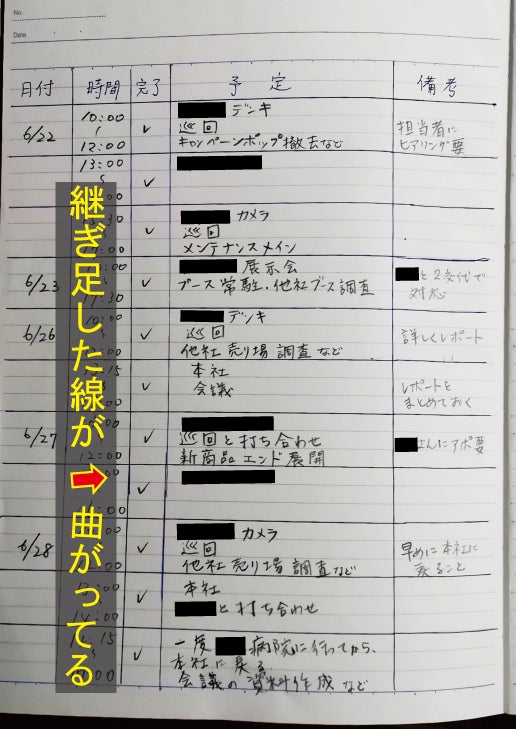 No.
Date
日付 時間 完了 予定 備考
6/22 10:00 ✓ デンキ
〜 巡回 担当者に
12:00 キャンペーンポップ撤去など ヒアリング要
13:00 ✓
:00
:30 ✓ カメラ
巡回
:00 メンテナンスメイン
6/23 :00 ✓ 展示会 と2交代で
:30 ブース常駐・他社ブース調査 対応
6/26 10:00 ✓ デンキ
巡回 詳しくレポート
:00 他社売り場調査など 〃
:15 ✓ 本社
会議 レポートを
まとめておく
6/27 ✓ 巡回と打ち合わせ さんにアポ要
12:00 新商品エンド展開
:00 ✓
:00
6/28 ✓ カメラ
巡回 早めに本社に
:00 他社売り場調査など 戻ること
:00 ✓ 本社
14:00 と打ち合わせ
:15 ✓ 一度 病院に行ってから、
本社に戻る
:00 会議の資料作成など
継ぎ足した線が➡曲がってる